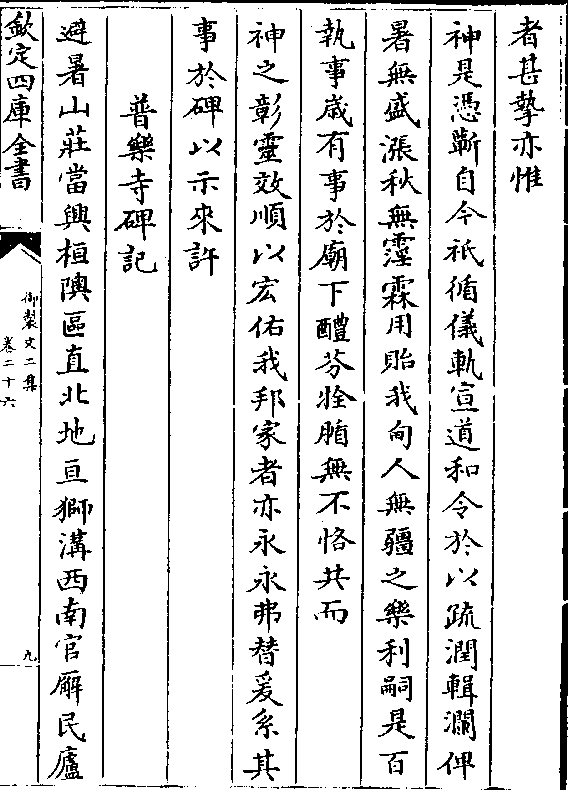 者甚摯亦惟
神是憑蘄自今祇循儀軌宣道和令於以疏潤輯瀾俾
暑無盛漲秋無霪霖用貽我甸人無疆之樂利嗣是百
執事歲有事於廟下醴芬牷腯無不恪共而
神之彰靈效順以宏佑我邦家者亦永永弗替爰系其
事於碑以示來許
普樂寺碑記
避暑山莊當興桓隩區直北地亘獅溝西南官廨民廬
欽定四庫全書
御製文二集
卷二十六
九